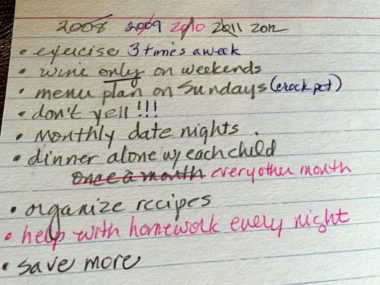 2008 2009 2010 2011 2012
• exercise 3 times a week
• wine only on weekends
• menu plan on Sundays (crock pot)
• don't yell!!!
• monthly date nights.
• dinner alone w/ each child
once a month every other month
• organize recipes
• help with homework every night
• save more